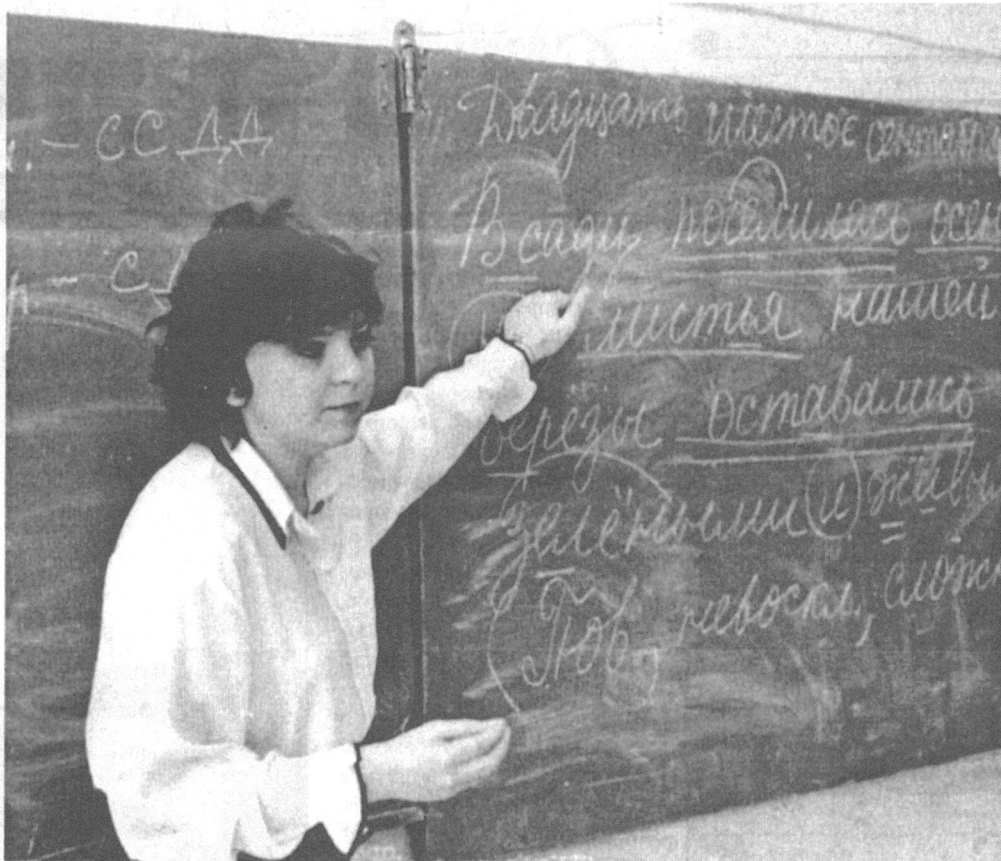 . - ССДД
- С
Двадцать шестое сентября
В саду поселилась осен
листья нашей
берёзы оставались
зелёными (и) живы
(Пов., невоскл., слож